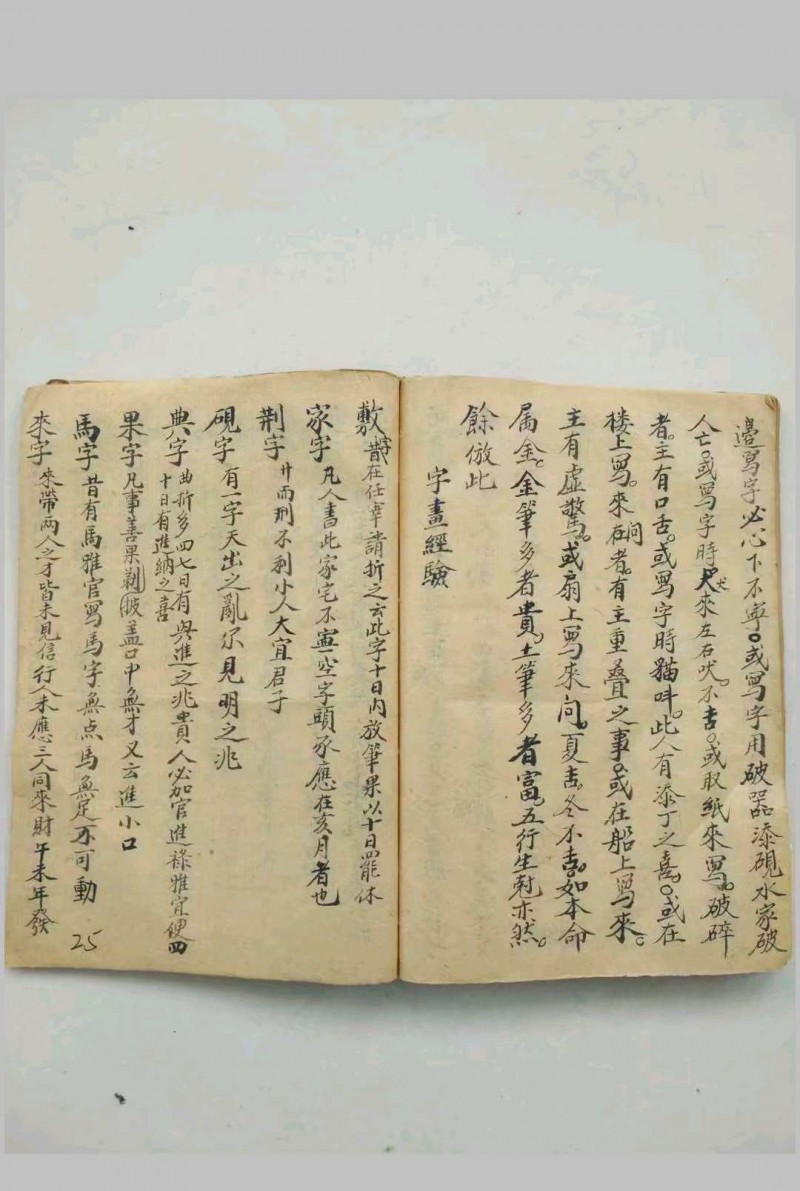 邊寫字必心下不寧。或寫字用破器添硯水家破
人亡。或寫字時犬來左右吠。不吉。或取紙來寫。破碎
者。主有口舌。或寫字時猫呌。此人有添丁之喜。或在
楼上寫。來問者。有主重叠之事。或在船上寫來。
主有虛驚。或扇上寫來问。夏吉。冬不吉。如本命
属金。金筆多者貴。土筆多者富。五行生尅亦然。
餘倣此
字畫經驗
敷字 昔在任宰請折之云此字十日内放筆果以十日罷休
家字 凡人書此家宅不寧空字頭豕應在亥月者也
荆字 廾而刑不利小人大宜君子
硯字 有一字天出之亂尔見明之兆
典字 曲折多四七日有興進之兆貴人必加官進祿雅宜便四
十日有進納之喜
果字 凡事善果剥披盖口中無才又云進小口
馬字 昔有馬雅官寫馬字無点馬無足不可動
來字 來帶兩人之才皆未見信行人未應三人同來財午未年發
25